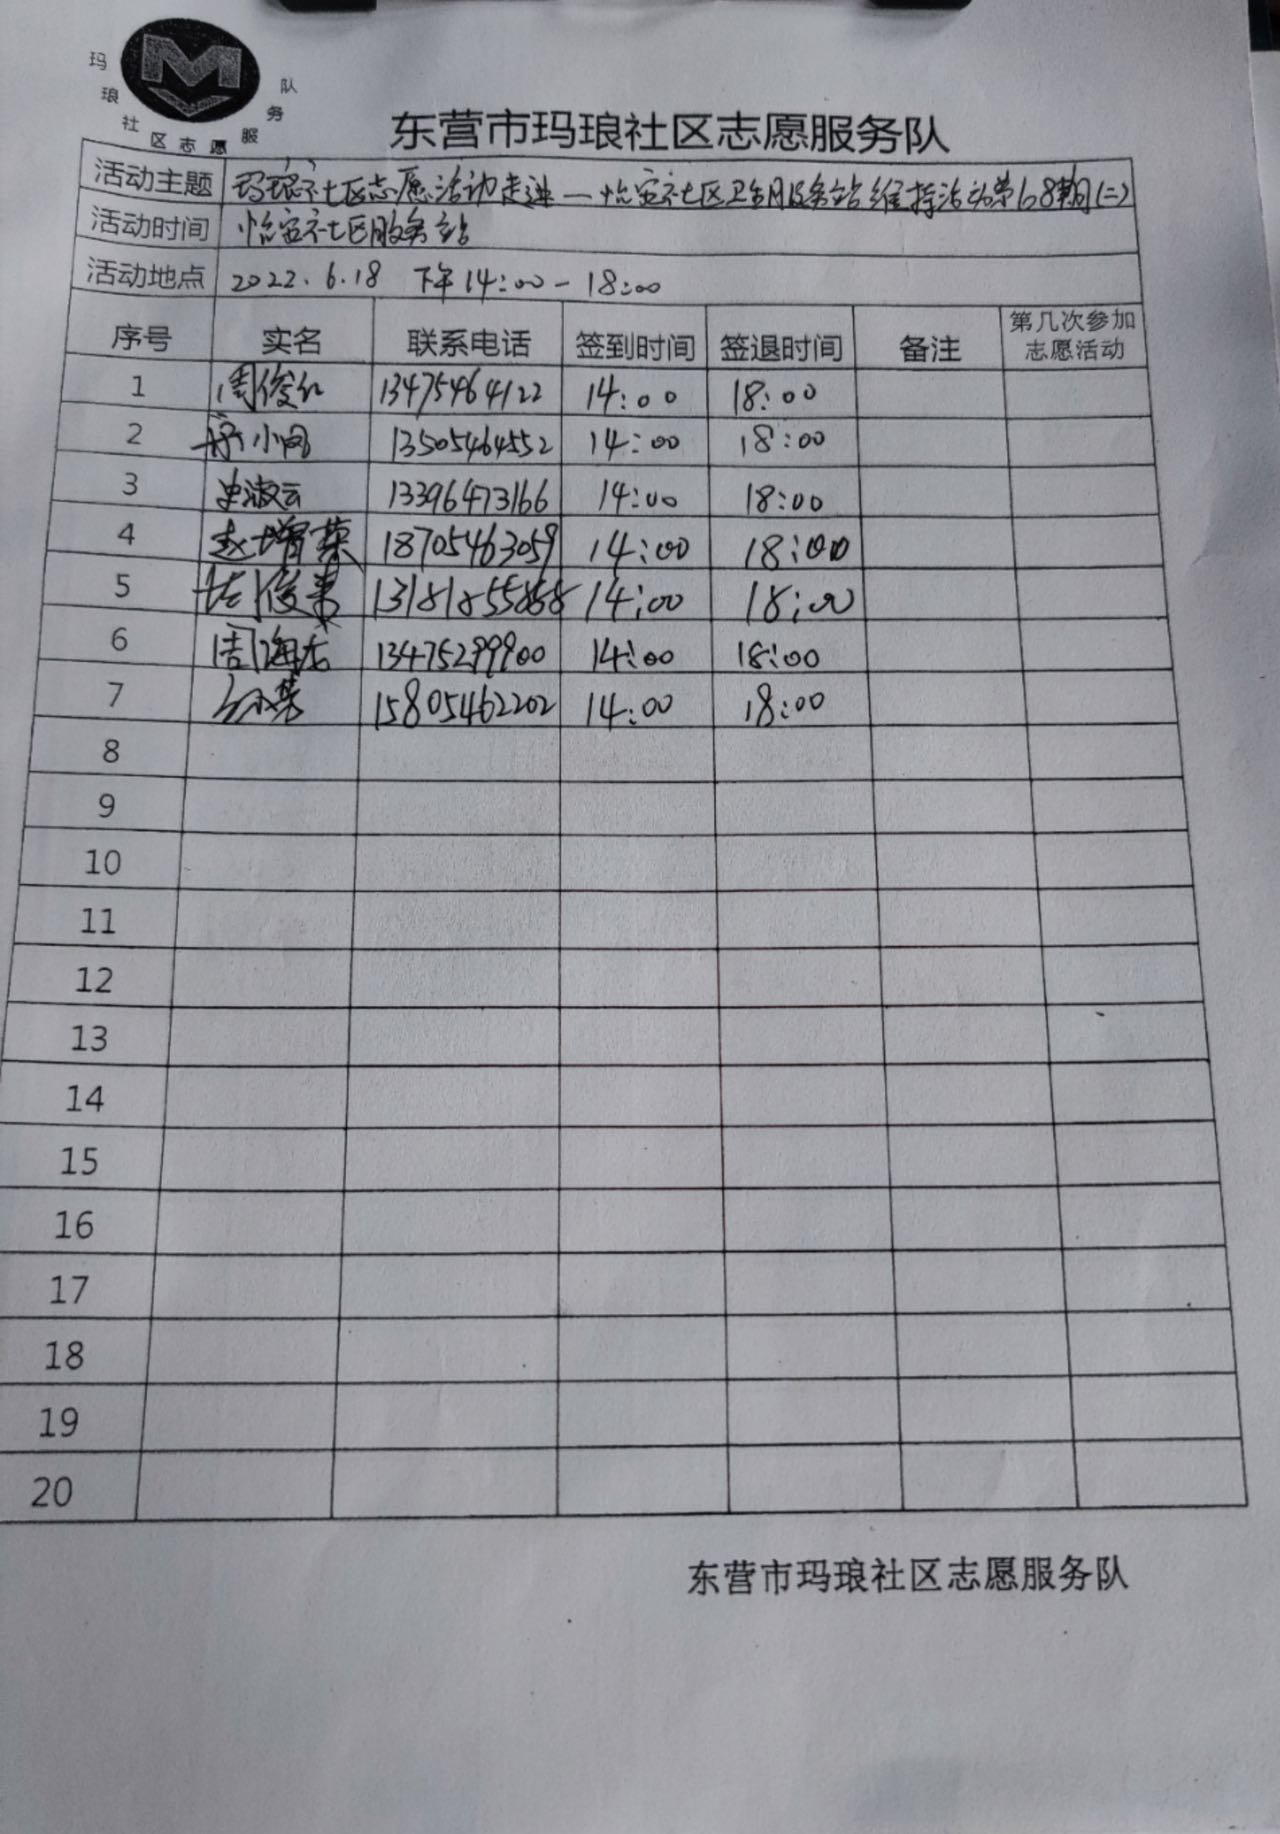 玛琅社区志愿服务队
东营市玛琅社区志愿服务队
活动主题 玛琅社区志愿活动走进—怡安社区卫生服务站维持活动第68期(二)
活动时间 怡安社区服务站
活动地点 2022.6.18 下午14:00-18:00
序号 实名 联系电话 签到时间 签退时间 备注 第几次参加志愿活动
1 周俊红 13475464122 14:00 18:00
2 小 13505464552 14:00 18:00
3 史淑云 13396473166 14:00 18:00
4 赵增荣 18705463059 14:00 18:00
5 俊 13181855868 14:00 18:00
6 周海 13475299900 14:00 18:00
7 15805462202 14:00 18:00
8
9
10
11
12
13
14
15
16
17
18
19
20
东营市玛琅社区志愿服务队